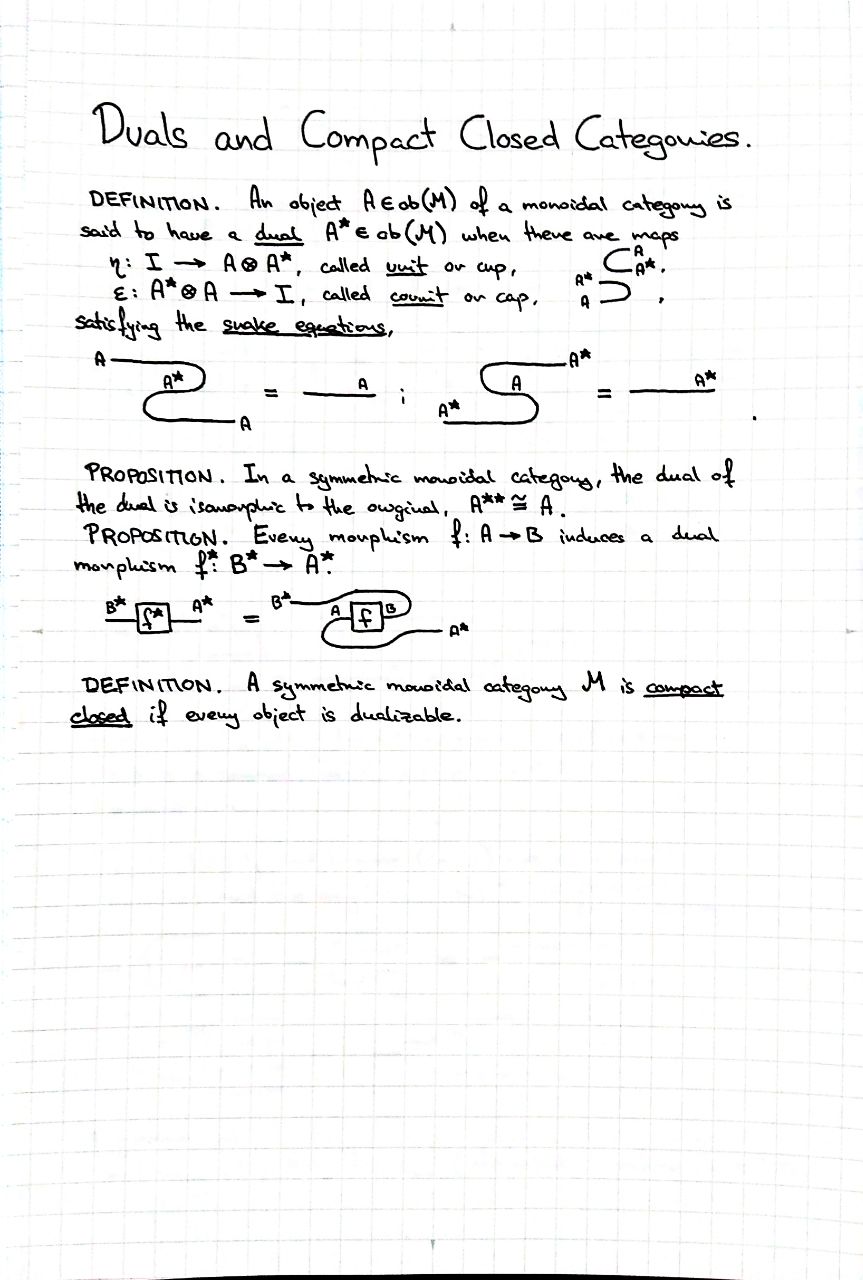 Duals and Compact Closed Categories.
DEFINITION. An object A∈ob(M) of a monoidal category is
said to have a dual A*∈ob(M) when there are maps
η: I → A⊗A*, called unit or cup, A A*.
ε: A*⊗A → I, called counit or cap, A* A ,
satisfying the snake equations,
A A* A = A ; A* A A* = A* .
PROPOSITION. In a symmetric monoidal category, the dual of
the dual is isomorphic to the original, A** ≅ A.
PROPOSITION. Every morphism f: A → B induces a dual
morphism f*: B* → A*.
B* f* A* = B* A f B A*
DEFINITION. A symmetric monoidal category M is compact
closed if every object is dualizable.